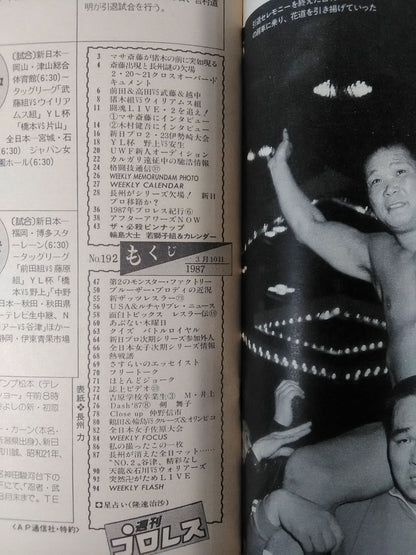 明が引退試合を行う。
引退セレモニーを終えた
の肩車に乗り、花道を引き揚げていった
〔試合〕新日本—
岡山・津山総合
体育館(6:30)—
タッグリーグ「武
藤組VSウイリア
ムス組」YL杯
「橋本VS片山」
全日本—宮城・石
ジャパン女
園ホール(6:30)
〔試合〕新日本—
福岡・博多スタ
ーレーン(6:30)
—タッグリーグ
「前田組VS藤原
組」YL杯「橋
本VS野上」「中野
日本—秋田・秋田県
ーテレビ生中継、N
アーVS谷津」ほか—
静岡・伊東青果市場
3 マサ斎藤が猪木の前に突如現る
4 斎藤出現と長州謎の欠場
2・20〜21クロスオーバード
キュメント
6 前田&高田VS武藤&越中
8 猪木組VSウィリアムス組
11 闘魂LIVE・2を追え!
①マサ斎藤にインタビュー
14 ②木村健吾にインタビュー
16 新日プロ2・23伊勢崎大会
18 YL杯 野上VS安生
20 UWF新人オーディション
22 カルガリ遠征中の馳浩情報
24 格闘技通信
26 WEEKLY MEMORUNDAM PHOTO
27 WEEKLY CALENDAR
28 長州がシリーズ欠場! 新日
プロ移籍か?
36 1987年プロレス紀行⑥
38 アフターアワーズNOW
43 ザ・必殺ピンナップ
輪島大士 若獅子組&カレンダー
No.192 もくじ 3月10日 1987
47 第2のモンスター・ファクトリー
50 ブルーザー・ブロディの近況
55 新ザッツレスラー
56 USA&ルチャリブレ・ニュース
58 面白トピックス レスラー伝
60 あぶない木曜日
63 クイズ バトルロイヤル
64 新日プロ次期シリーズ参加外人
66 全日本女子次期シリーズ情報
68 熱戦譜
69 さすらいのエッセイスト
70 フリートーク
71 ほとんどジョーク
72 誌上ビデオ
74 吉原学校卒業生③ M・井上
76 Dash'87⑧ 剣 舞子
78 Close up 仲野信市
80 鶴田&輪島VSクルーズ&オリンピコ
82 全日本女子佐原大会
84 WEEKLY FOCUS
86 私の撮ったこの一枚
87 長州が消えた全日マット……
“NO.2„ 谷津、精彩なし
90 天龍&石川VSウォリアーズ
92 突然だがためLIVE
94 WEEKLY FLASH
星占い(隆遠治沙)
表紙
長州 力
ンプ松本(テレ
ョー」午前8時
よしの・初恋
・カーン(本名・
新潟県出身)、新日
川誠、昭和21年、
名神田駿河台下の
にて、「忍者・武
8月末まで。TE
〈AP通信社・特約〉
週刊
プロレス